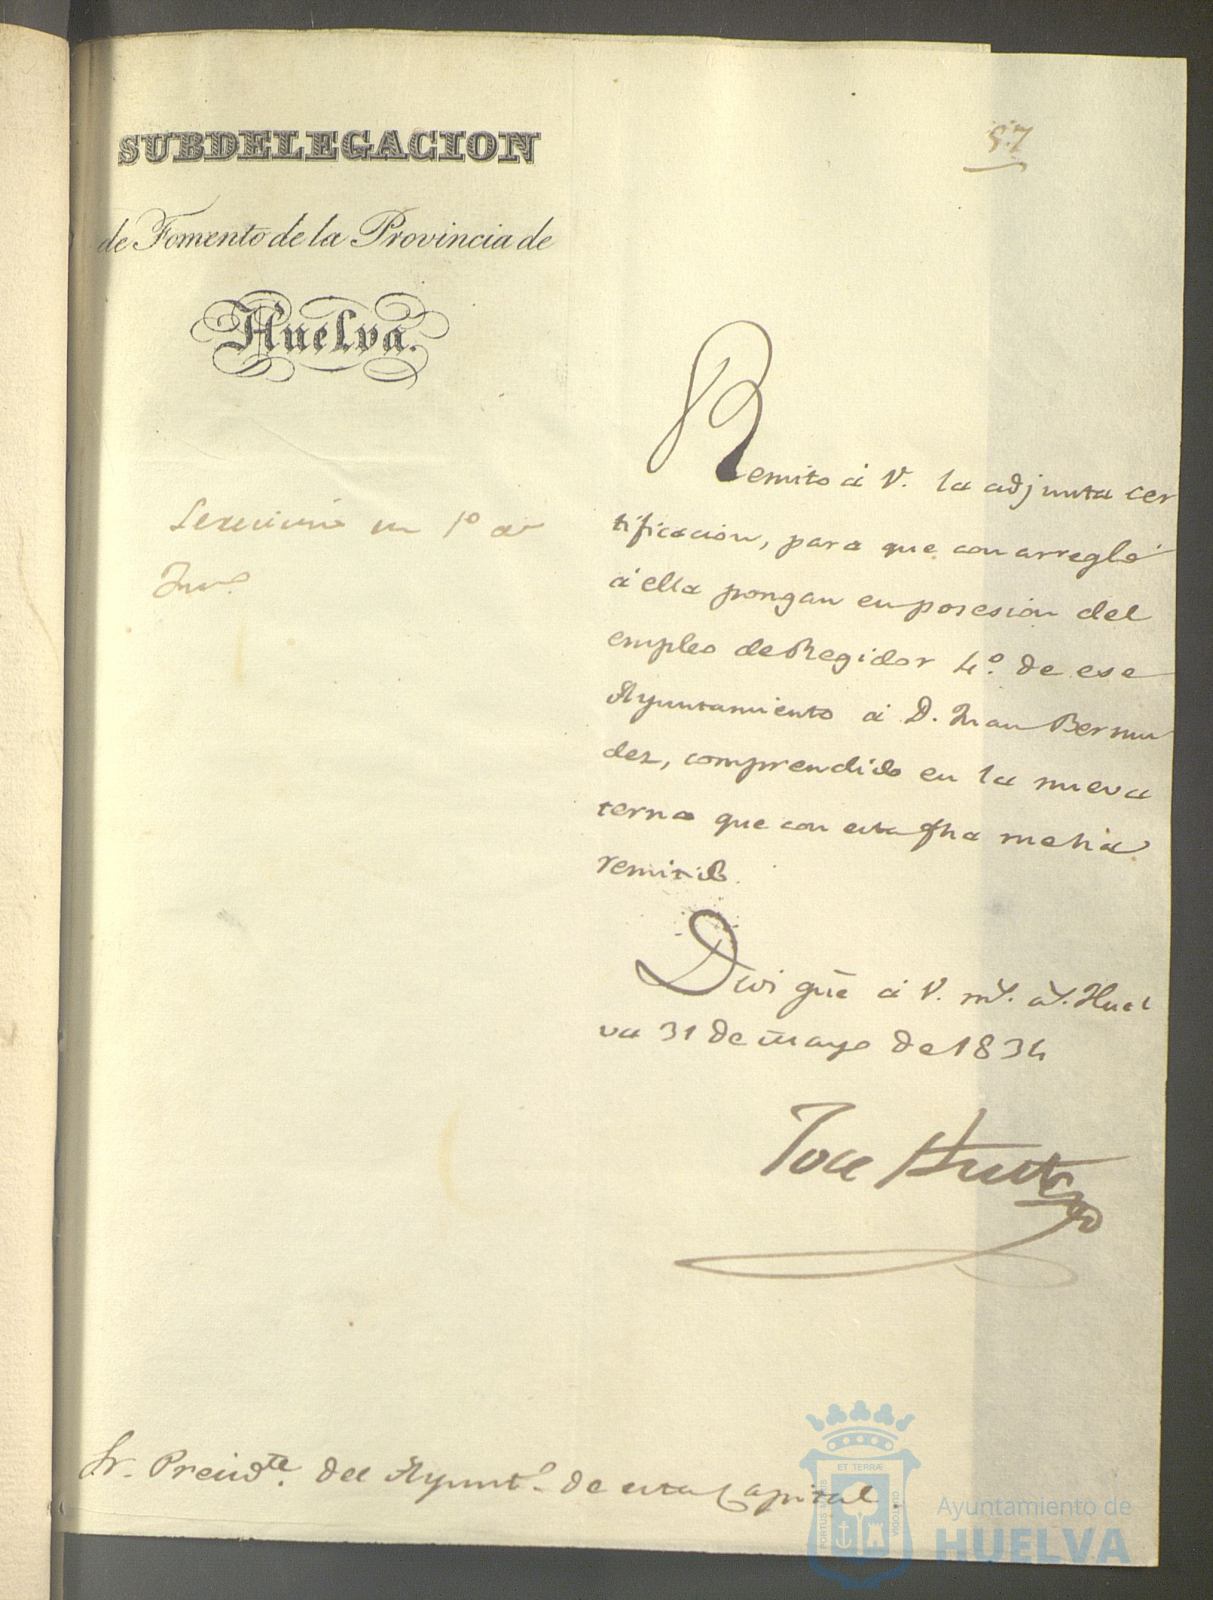 57
SUBDELEGACION
de Fomento de la Provincia de
Huelva.
Remito á V. la adjunta cer
tificacion, para que con arreglo
á ella pongan en posesion del
empleo de Regidor 4.º de ese
Ayuntamiento á D. Juan Bermu
dez, comprendido en la nueva
terna que con esta fha me ha
remitido.
en 1º de
Jun.º
Dios gue á V. ms. as. Huel
va 31 de mayo de 1834
Jose Huet
Sr. Presidte. del Ayunto. de esta Capital.
ET TERRÆ
PORTUS MARIS
CUSTODIA
Ayuntamiento de
HUELVA